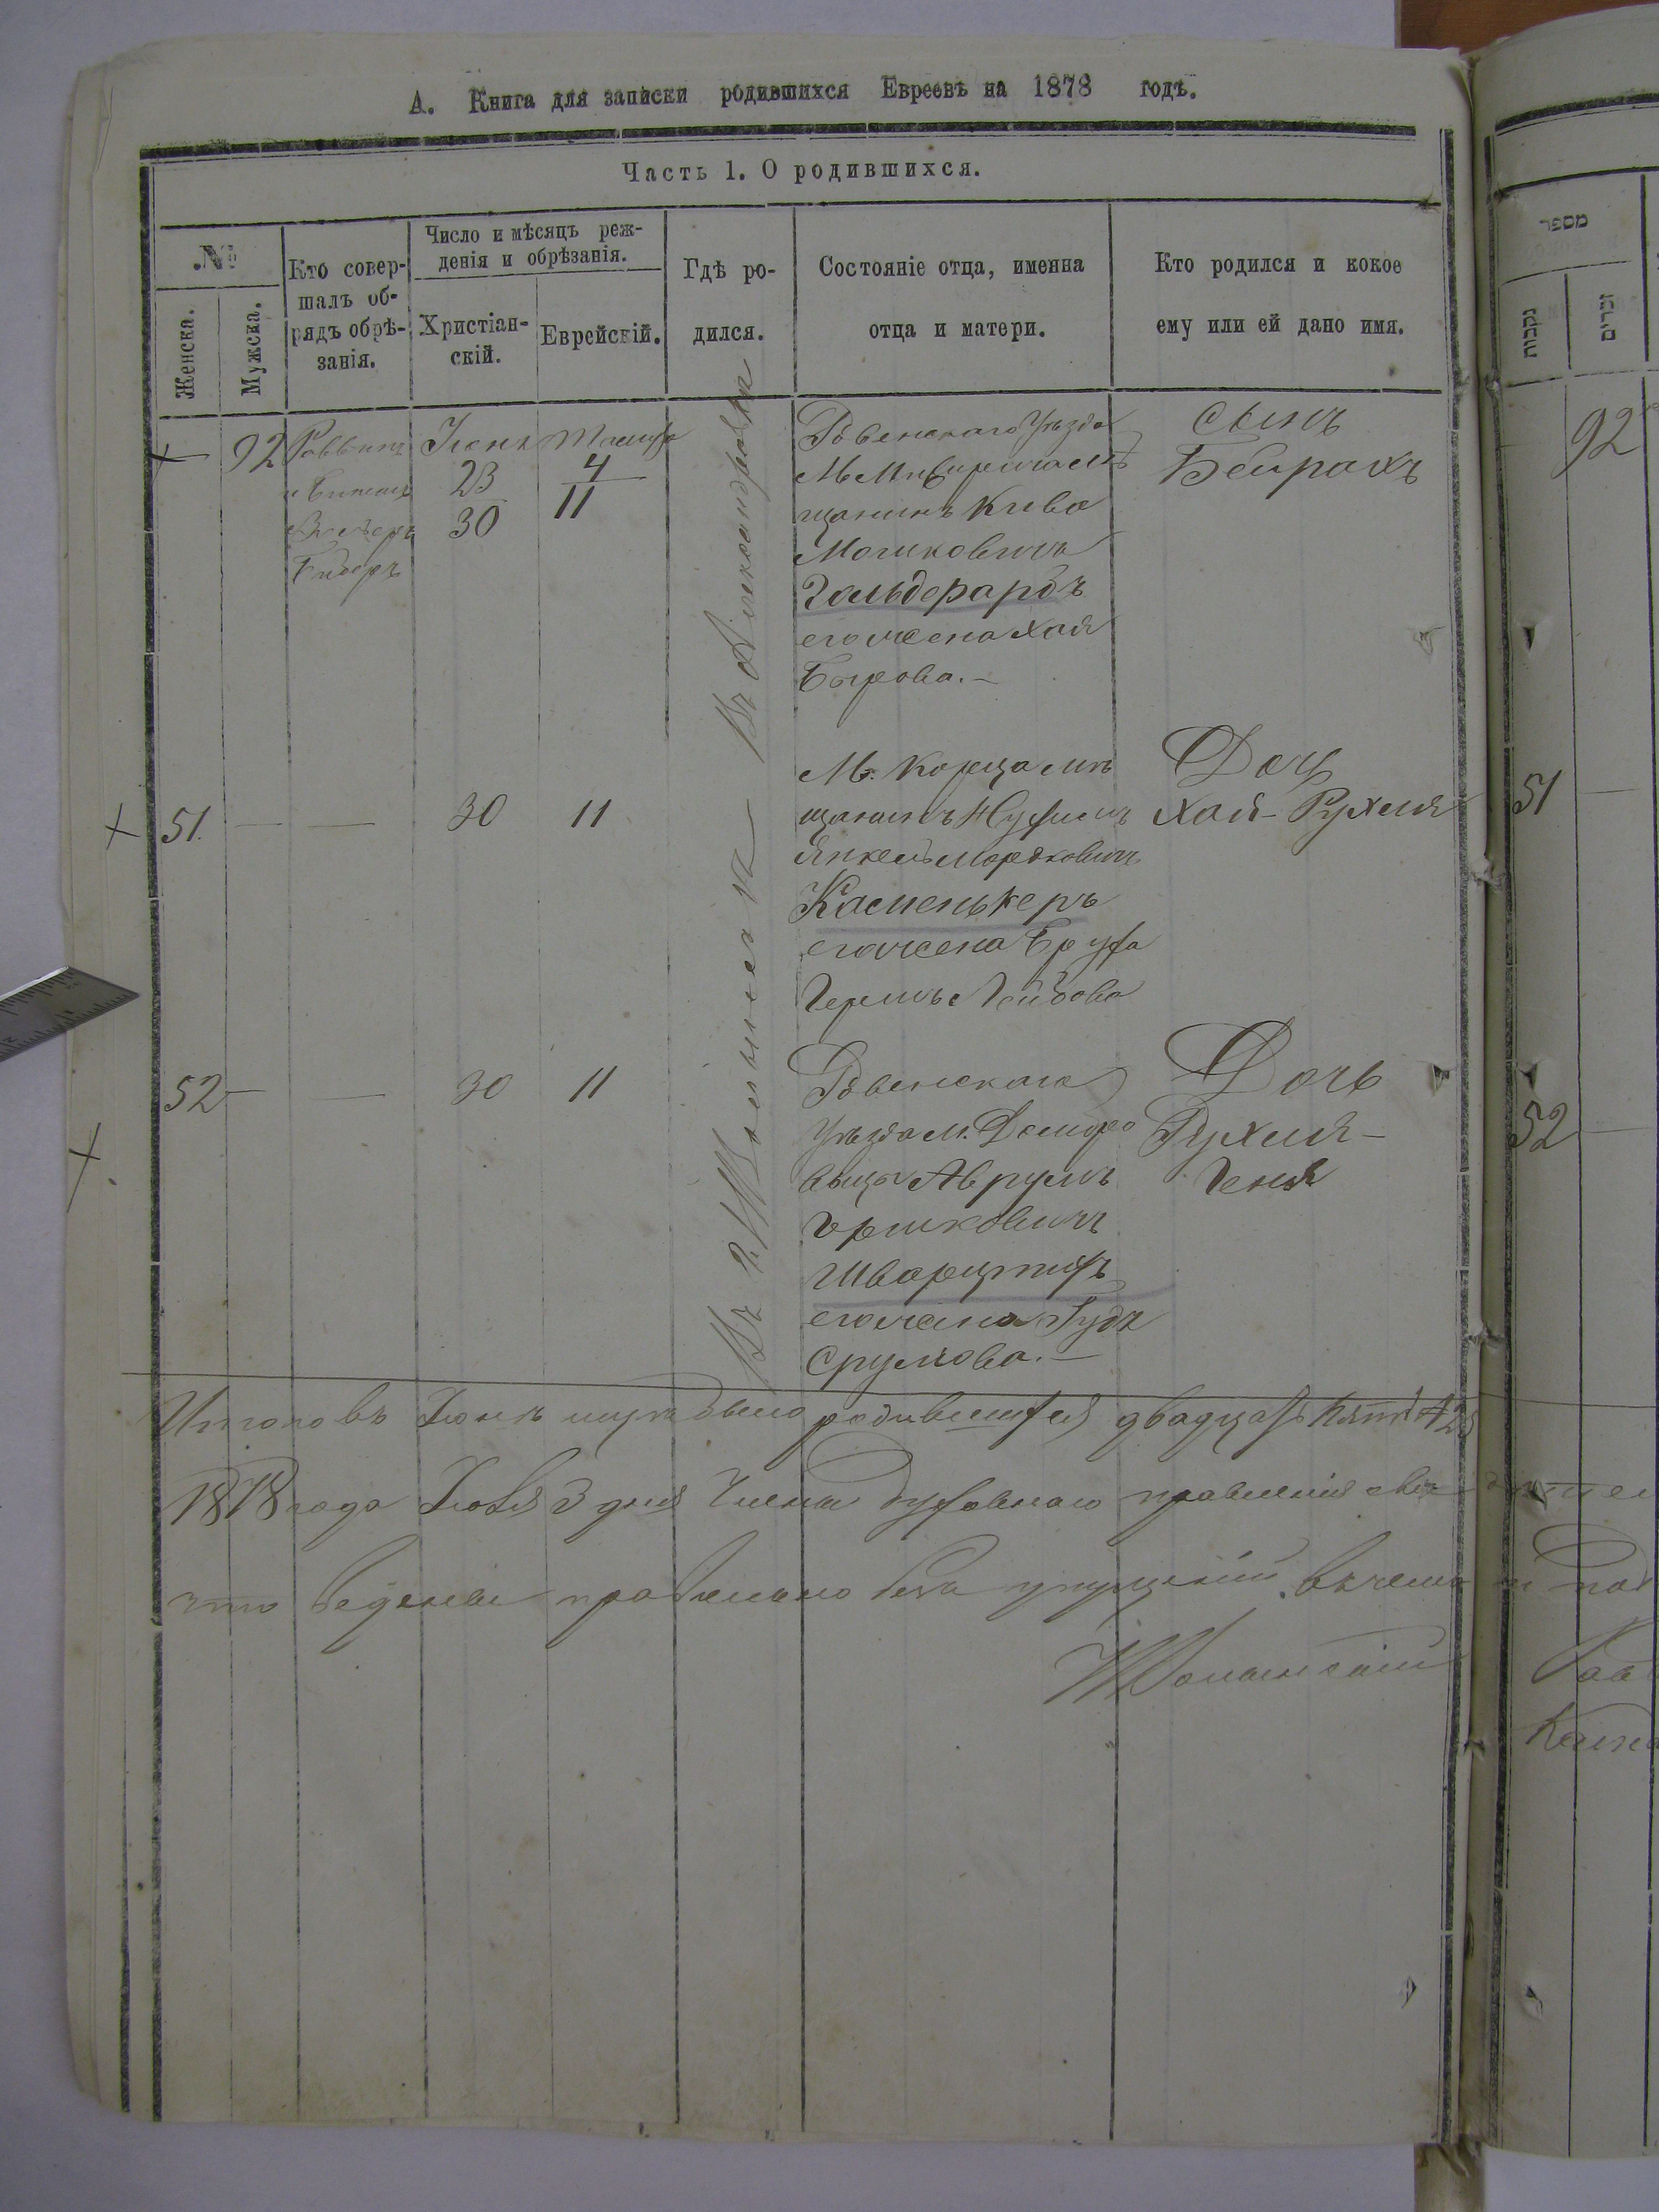 А. Книга для записки родившихся Евреевъ на 1878 годъ.
Часть 1. О родившихся.
№
Женска.
Мужска.
Кто совер-
шалъ об-
рядъ обрѣ-
занія.
Число и мѣсяцъ реж-
денія и обрѣзанія.
Христіан-
скій.
Еврейскій.
Гдѣ ро-
дился.
Состояніе отца, именна
отца и матери.
Кто родился и кокое
ему или ей дано имя.
92
Раввинъ
Іюнь
23
30
4
11
Въ Александровки
Ровенскаго Уѣзда
щанинъ Кива
Мошковичъ
Гольдфарбъ
его жена Хая
Берова.—
сынъ
Бейрахъ
51.
30
11
М. Корца мѣ
щанинъ
Янкель Мордковичъ
Каменькеръ
его жена Бруха
Гершъ Лейбова
Дочь
Хая-Рухля
52
30
11
Ровенскаго
Уѣзда м. Домбро
вицы Аврумъ
Гершковичъ
Шварцтихъ
его жена
Срулова.—
Дочь
Рухля-
Геня
Итого въ Іюнѣ было родившихся двадцать пять 25
1878 года Іюля 3 дня Члены Духовнаго правленія
что ведены правильно безъ упущеній въ чемъ и
מספר
נקבות
זכרים
92
51
52